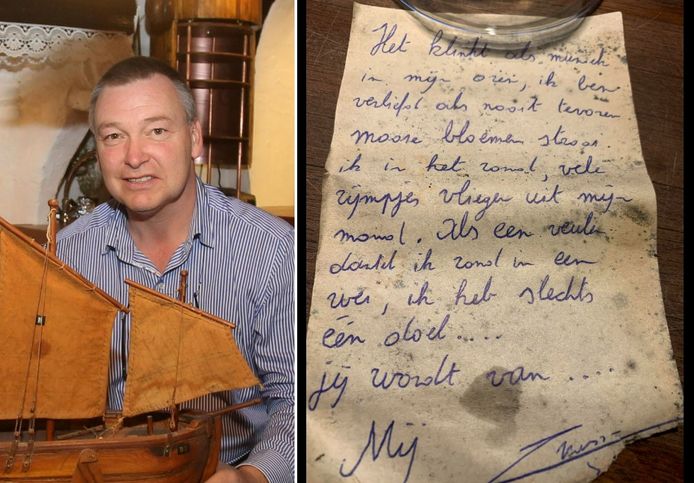 Het klinkt als muziek
in mijn oren, ik ben
verliefd als nooit tevoren
mooie bloemen strooi
ik in het rond, vele
rijmpjes vliegen uit mijn
mond. Als een veulen
dartel ik rond in een
wei, ik heb slechts
één doel....
jij wordt van ....
Mij